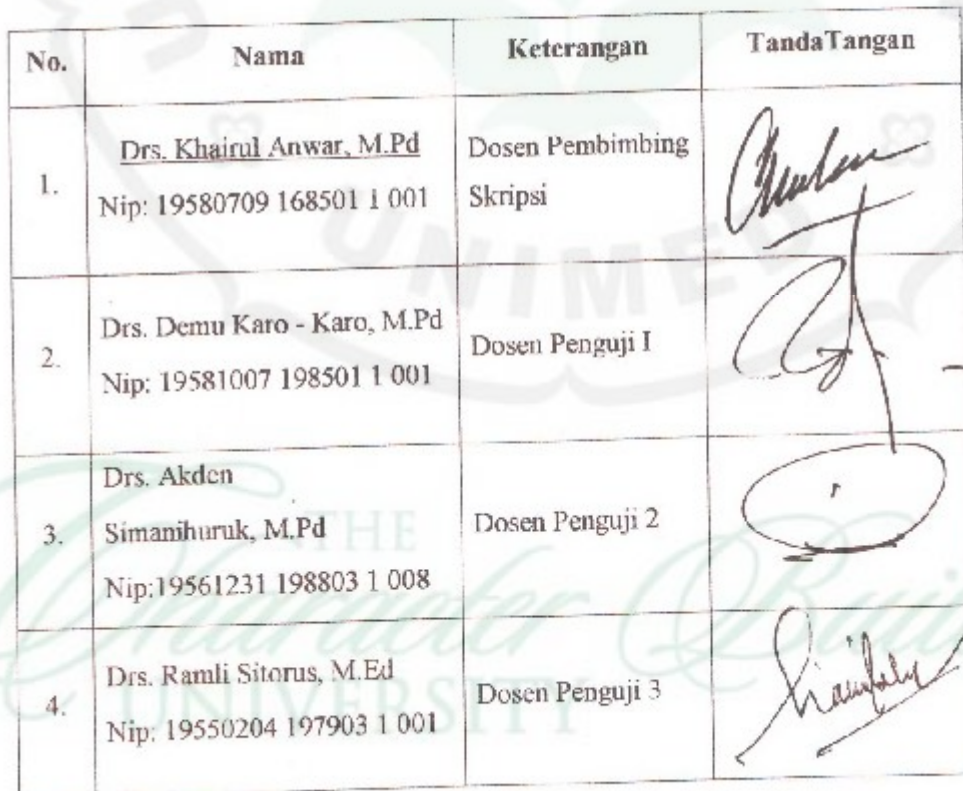 No. Nama Keterangan TandaTangan
1. Drs. Khairul Anwar, M.Pd
Nip: 19580709 168501 1 001
Dosen Pembimbing
Skripsi
2. Drs. Demu Karo - Karo, M.Pd
Nip: 19581007 198501 1 001
Dosen Penguji I
3. Drs. Akden
Simanihuruk, M.Pd
Nip:19561231 198803 1 008
Dosen Penguji 2
4. Drs. Ramli Sitorus, M.Ed
Nip: 19550204 197903 1 001
Dosen Penguji 3
UNIMED
THE
Character Buil
UNIVERSITY